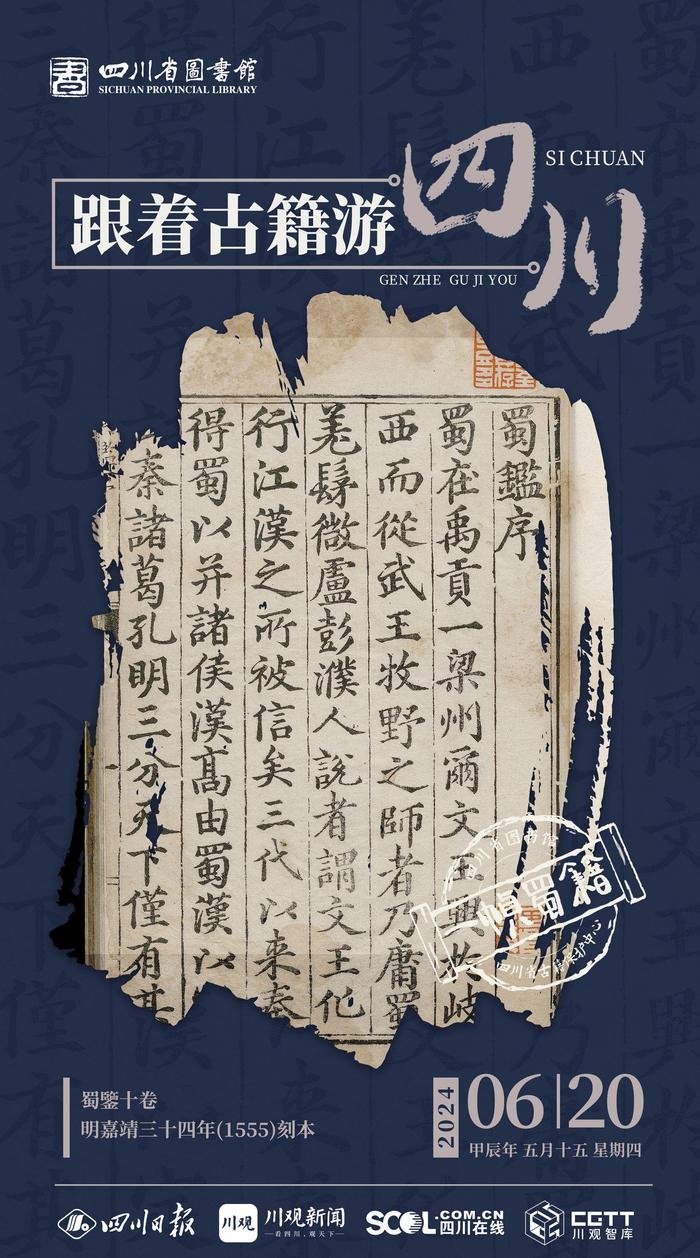 四川省圖書館
SICHUAN PROVINCIAL LIBRARY
四川
SI CHUAN
跟着古籍游
GEN ZHE GU JI YOU
蜀鑑序
蜀在禹貢一梁州爾文王興於岐
西而從武王牧野之師者乃庸蜀
羌髳微盧彭濮人說者謂文王化
行江漢之所被信矣三代以来秦
得蜀以并諸侯漢高由蜀漢以
秦諸葛孔明三分天下僅有其
一帧蜀籍
四川省图书馆
四川省古籍保护中心
蜀鑒十卷
明嘉靖三十四年(1555)刻本
2024
06|20
甲辰年 五月十五 星期四
四川日报
川观
川观新闻
看四川,观天下
SCOL.COM.CN
四川在线
CGTT
川观智库